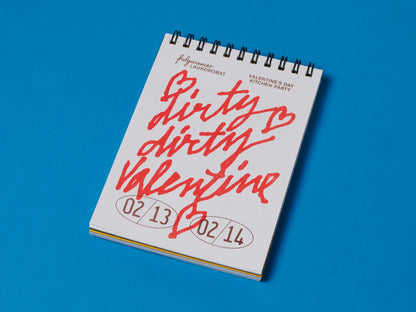 fulgurances
LAUNDROMAT
VALENTINE'S DAY
KITCHEN PARTY
dirty
dirty
Valentine
02/13
02/14